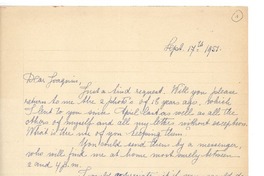 Sept. 17th 1955.
Dear Joaquin,
Just a kind request. Will you please
return to me the 2 photo's of 18 years ago, which
I sent to you since April last as well as all the
others of myself and all my letters without exception.
What is the use of you keeping them?
You could send them by a messenger,
who will find me at home most surely between
2 and 4 p.m.